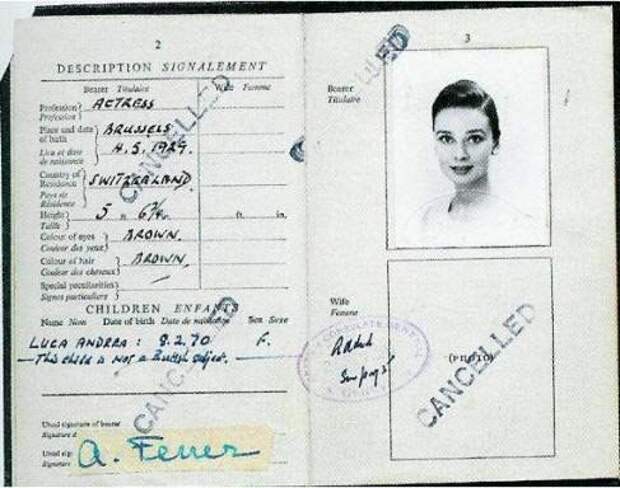 2
DESCRIPTION SIGNALEMENT
Bearer Titulaire Wife Femme
Profession ACTRESS
Profession
Place and date of birth BRUSSELS
Lieu et date de naissance 4.5.1929.
Country of Residence SWITZERLAND
Pays de Résidence
Height 5 ft. 6¾ in. ft. in.
Taille
Colour of eyes BROWN.
Couleur des yeux
Colour of hair BROWN.
Couleur des cheveux
Special peculiarities
Signes particuliers
CANCELLED
CHILDREN ENFANTS
Name Nom Date of birth Date de naissance Sex Sexe
LUCA ANDREA: 8.2.70 F.
This child is not a British subject.
CANCELLED
Usual signature of bearer
Signature d
Usual sig
Signature
A. Ferrer
3
CANCELLED
Bearer
Titulaire
Wife
Femme
(PHOTO)
CANCELLED